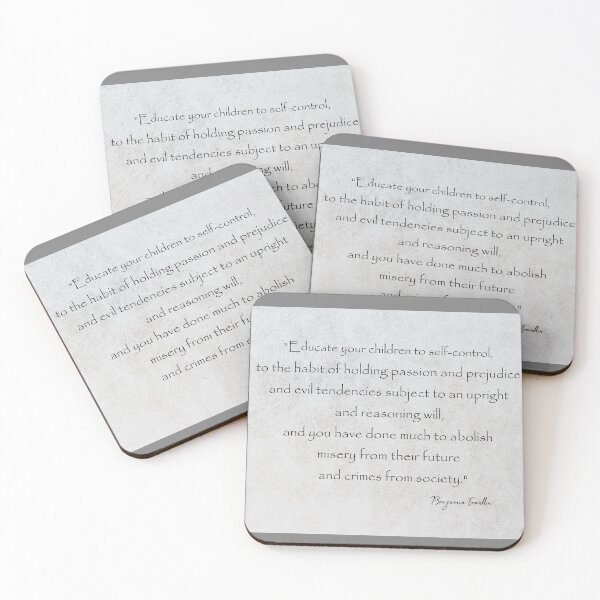 "Educate your children to self-control,
to the habit of holding passion and prejudice
and evil tendencies subject to an
reasoning will,
to
future
"Educate your children to self-control,
to the habit of holding passion and prejudice
and evil tendencies subject to an upright
and reasoning will,
and you have done much to abolish
misery from their future
"Educate your children to self-control,
to the habit of holding passion and prejudice
and evil tendencies subject to an upright
and reasoning will,
and you have done much to abolish
misery from their future
and crimes from
"Educate your children to self-control,
to the habit of holding passion and prejudice
and evil tendencies subject to an upright
and reasoning will,
and you have done much to abolish
misery from their future
and crimes from society."
Benjamin Franklin